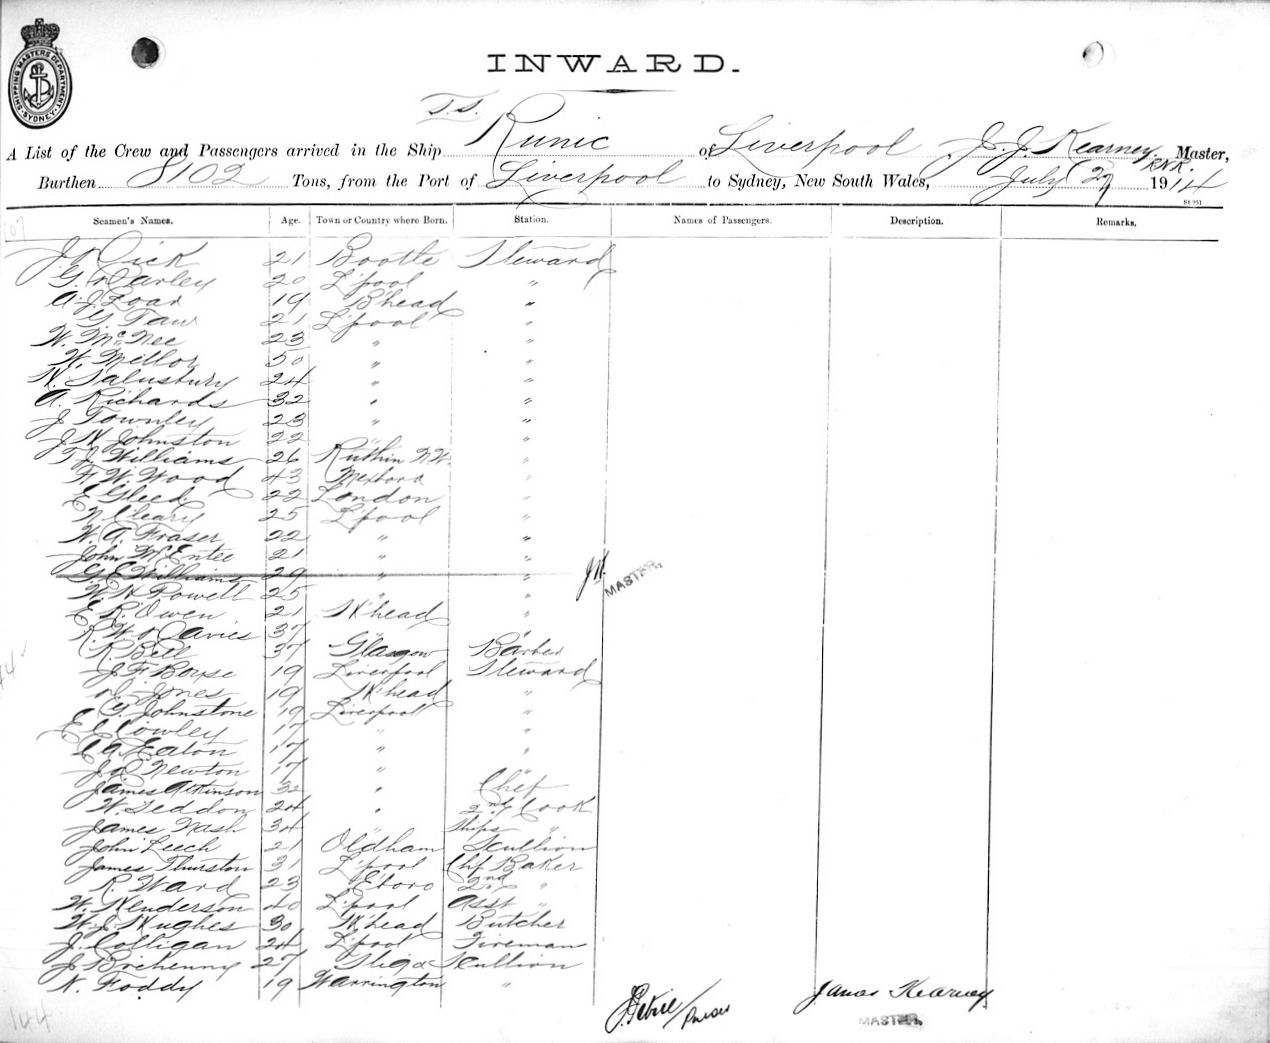 SHIPPING MASTERS DEPARTMENT
SYDNEY
INWARD.
S.S.
A List of the Crew and Passengers arrived in the Ship Runic of Liverpool, J. J. Kearney R.N.R. Master,
Burthen 8102 Tons, from the Port of Liverpool to Sydney, New South Wales, July 27 1914
Seamen's Names. Age. Town or Country where Born. Station. Names of Passengers. Description. Remarks.
Dick 21 Bootle Steward
G. Darley 20 L'pool "
A. J. Loar 19 B'head "
G. Taw 21 L'pool "
W. McNee 23 " "
W. Mellor 50 " "
H. Salusbury 24 " "
A. Richards 32 " "
J. Townley 23 " "
J. H. Johnston 22 " "
T. J. Williams 26 Ruthin N.W. "
F. W. Wood 43 Mexboro "
E. Gleed 22 London "
N. Cleary 25 L'pool "
W. A. Fraser 22 " "
John McEntee 21 " "
G. E. Williams 29 " " J.K. MASTER.
W. H. Powell 25 " "
E. R. Owen 21 B'head "
R. W. D. Davies 37 " "
R. Bell 37 Glasgow Barber
J. F. Boyse 19 Liverpool Steward
D. Jones 19 B'head "
G. Johnstone 19 Liverpool "
E. E. Cowley 17 " "
C. A. Eaton 17 " "
J. D. Newton 17 " "
James Atkinson 32 " Chef
W. Seddon 24 " 2nd Cook
James Nash 34 " Ships "
John Leech 21 Oldham Scullion
James Thurston 31 L'pool Chf Baker
R. Ward 23 2nd "
W. Henderson 40 L'pool Asst "
W. J. Hughes 30 B'head Butcher
J. Colligan 24 L'pool Fireman
J. Brehenny 27 Sligo Scullion
N. Foddy 19 Warrington "
Purser James Kearney
MASTER.
144